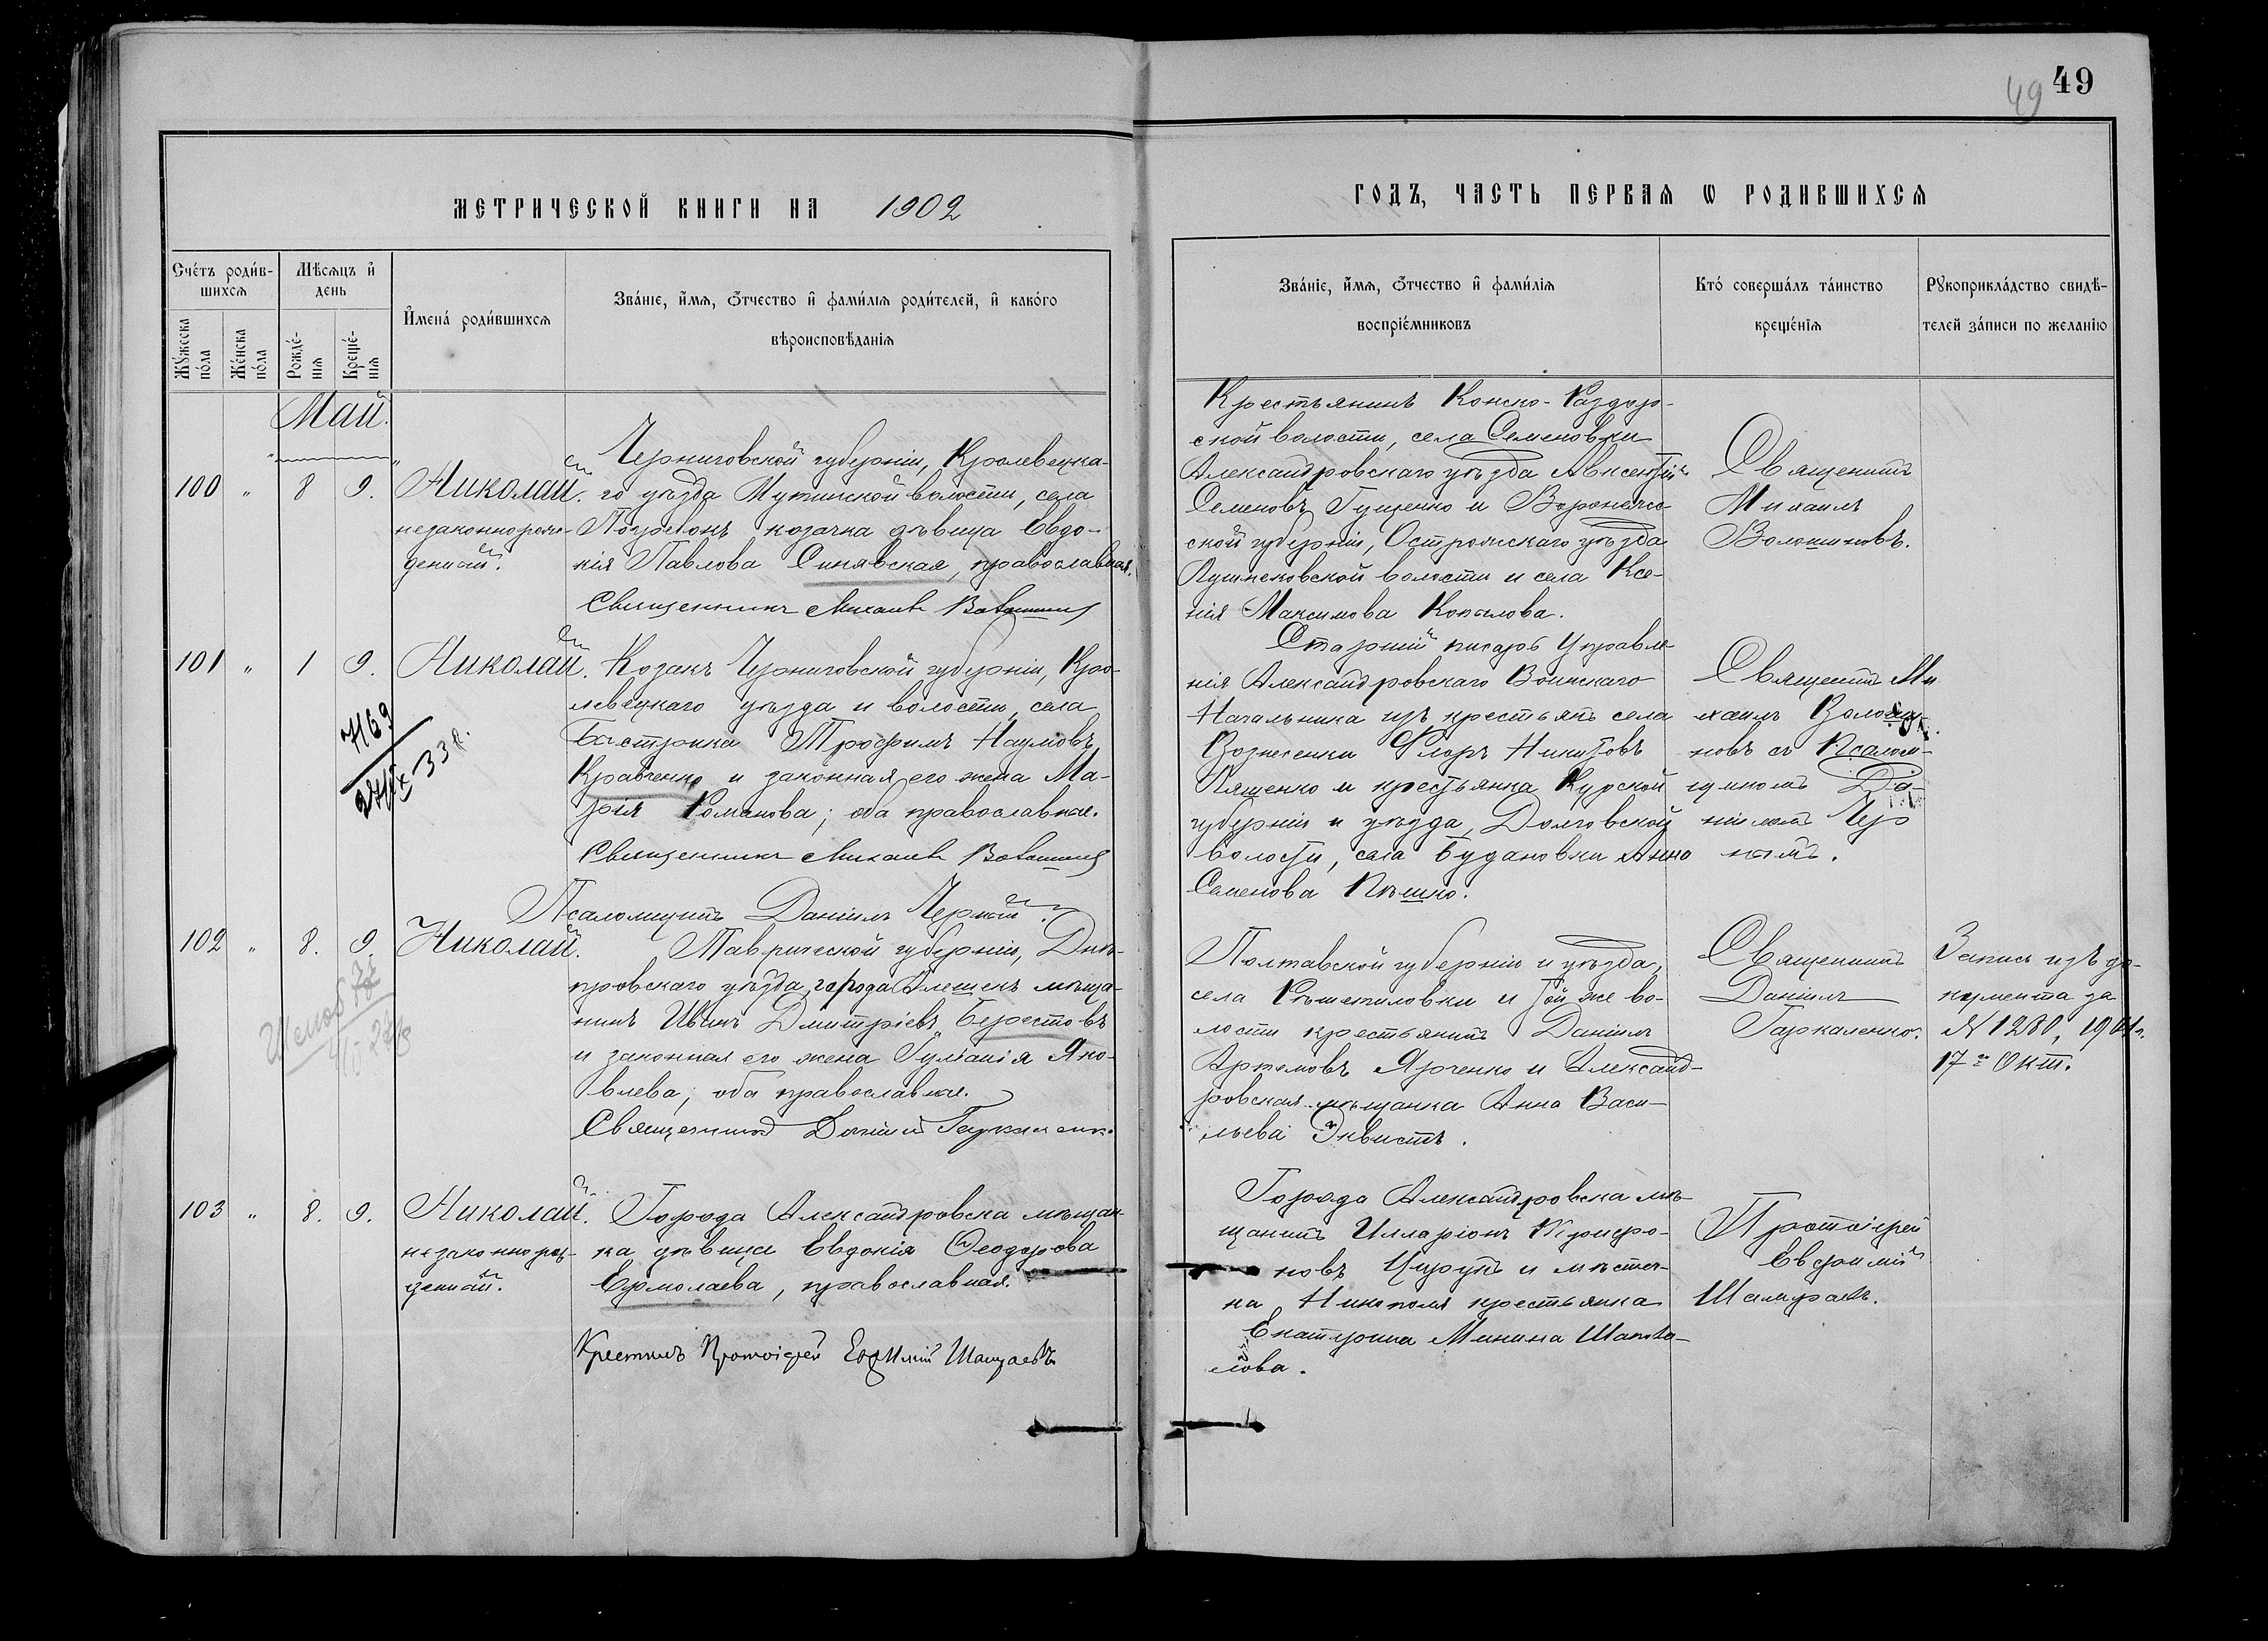 49
49
МЕТРИЧЕСКОЙ КНИГИ НА 1902
ГОДЪ, ЧАСТЬ ПЕРВАЯ Ѡ РОДИВШИХСЯ
Счéтъ роди́в-
шихся
Мѣсяцъ и҆
день
И҆мена́ роди́вшихся
Зва́нїе, и҆́мя, ѻ҆́тчество и҆ фами́лїя роди́телей, и҆ како́го
вѣроисповѣданїя
Мꙋ́жеска
по́ла
Же́нска
по́ла
Рожде́-
нїя
Креще́-
нїя
Зва́нїе, и҆́мя, ѻ҆́тчество и҆ фами́лїя
воспрїе́мниковъ
Кто́ соверша́лъ та́инство
креще́нїя
Рꙋкоприкла́дство свидѣ́-
телей за́писи по жела́нїю
Май.
100 " 8 9. Николай.
незаконнорож-
денный.
Черниговской губерніи, Кролевецка-
го уѣзда Мутинской волости, села
козачка дѣвица Евдо-
кія Павлова Синявская, православная.
Священникъ Михаилъ Волошиновъ
Крестьянинъ Конско-Раздор-
ской волости, села Семеновки
Александровскаго уѣзда Авксентій
Семеновъ Гущенко и Воронеж-
ской губерніи, Острожскаго уѣзда
волости и села Ксе-
нія Максимова Копылова.
Священникъ
Михаилъ
Волошиновъ.
101 " 1 9. Николай.
7169
33 г.
Козакъ Черниговской губерніи, Кро-
левецкаго уѣзда и волости, села
Быстрика Трофимъ Наумовъ
Кравченко и законная его жена Ма-
рія Романова; оба православные.
Священникъ Михаилъ Волошиновъ
Псаломщикъ Даніилъ Черный.
Старшій писарь Управле-
нія Александровскаго Воинскаго
Начальника изъ крестьянъ села
Вознесенки Флоръ Никитовъ
Ляшенко и крестьянка Курской
губерніи и уѣзда, Долговской
волости, села Будановки Анна
Семенова
Священникъ Ми
хаилъ Волоши-
новъ съ Псалом-
щикомъ Да-
ніиломъ Чер
нымъ.
102 " 8. 9. Николай.
Таврической губерніи, Днѣ-
провскаго уѣзда, города Алешекъ мѣща-
нинъ Иванъ Димитріевъ Берестовъ
и законная его жена Гуліанія Яко-
влева; оба православные.
Священникъ Даніилъ Гаркаленко
Полтавской губерніи и уѣзда,
села Рѣшетиловки и той же во-
лости крестьянинъ Даніилъ
Артемовъ Ярченко и Александ-
ровская мѣщанка Анна Васи-
льева Энвистъ.
Священникъ
Даніилъ
Гаркаленко.
Запись изъ до-
кумента за
№ 1280, 1901 г.
17го Окт.
103 " 8. 9. Николай.
незаконнорож-
денный.
Города Александровска мѣщан-
ка дѣвица Евдокія Ѳеодорова
Ермолаева, православная.
Крестилъ Протоіерей Евфимій Шамраевъ
Города Александровска мѣ-
щанинъ Илларіонъ
новъ Цируль и мѣстеч-
ка Никополя крестьянка
Екатерина Минина Шапова-
лова.
Протоіерей
Евфимій
Шамраевъ.